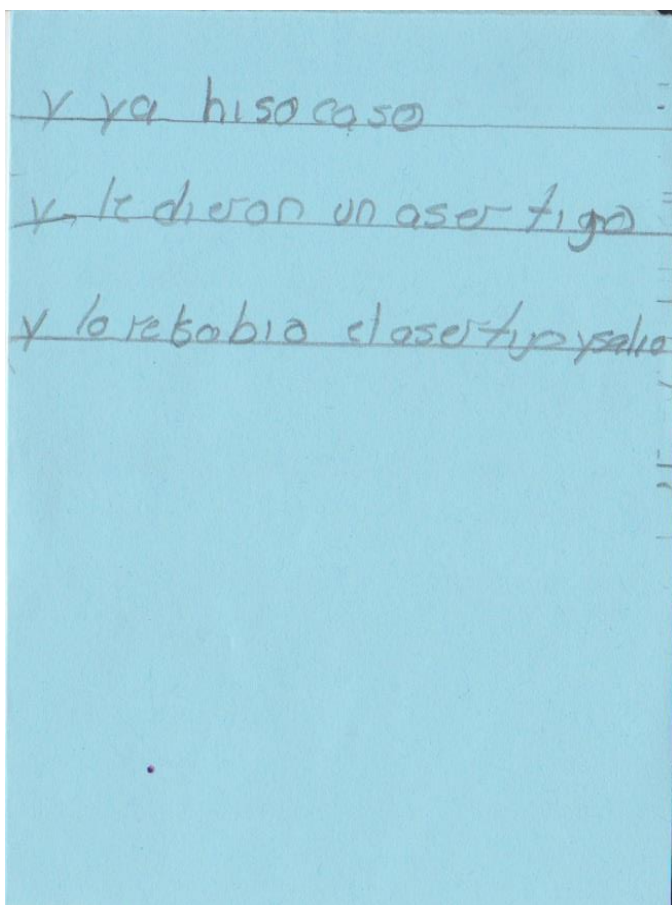 y ya hiso caso
y le dieron un asertigo
y lo resobio el asertijo ysalio